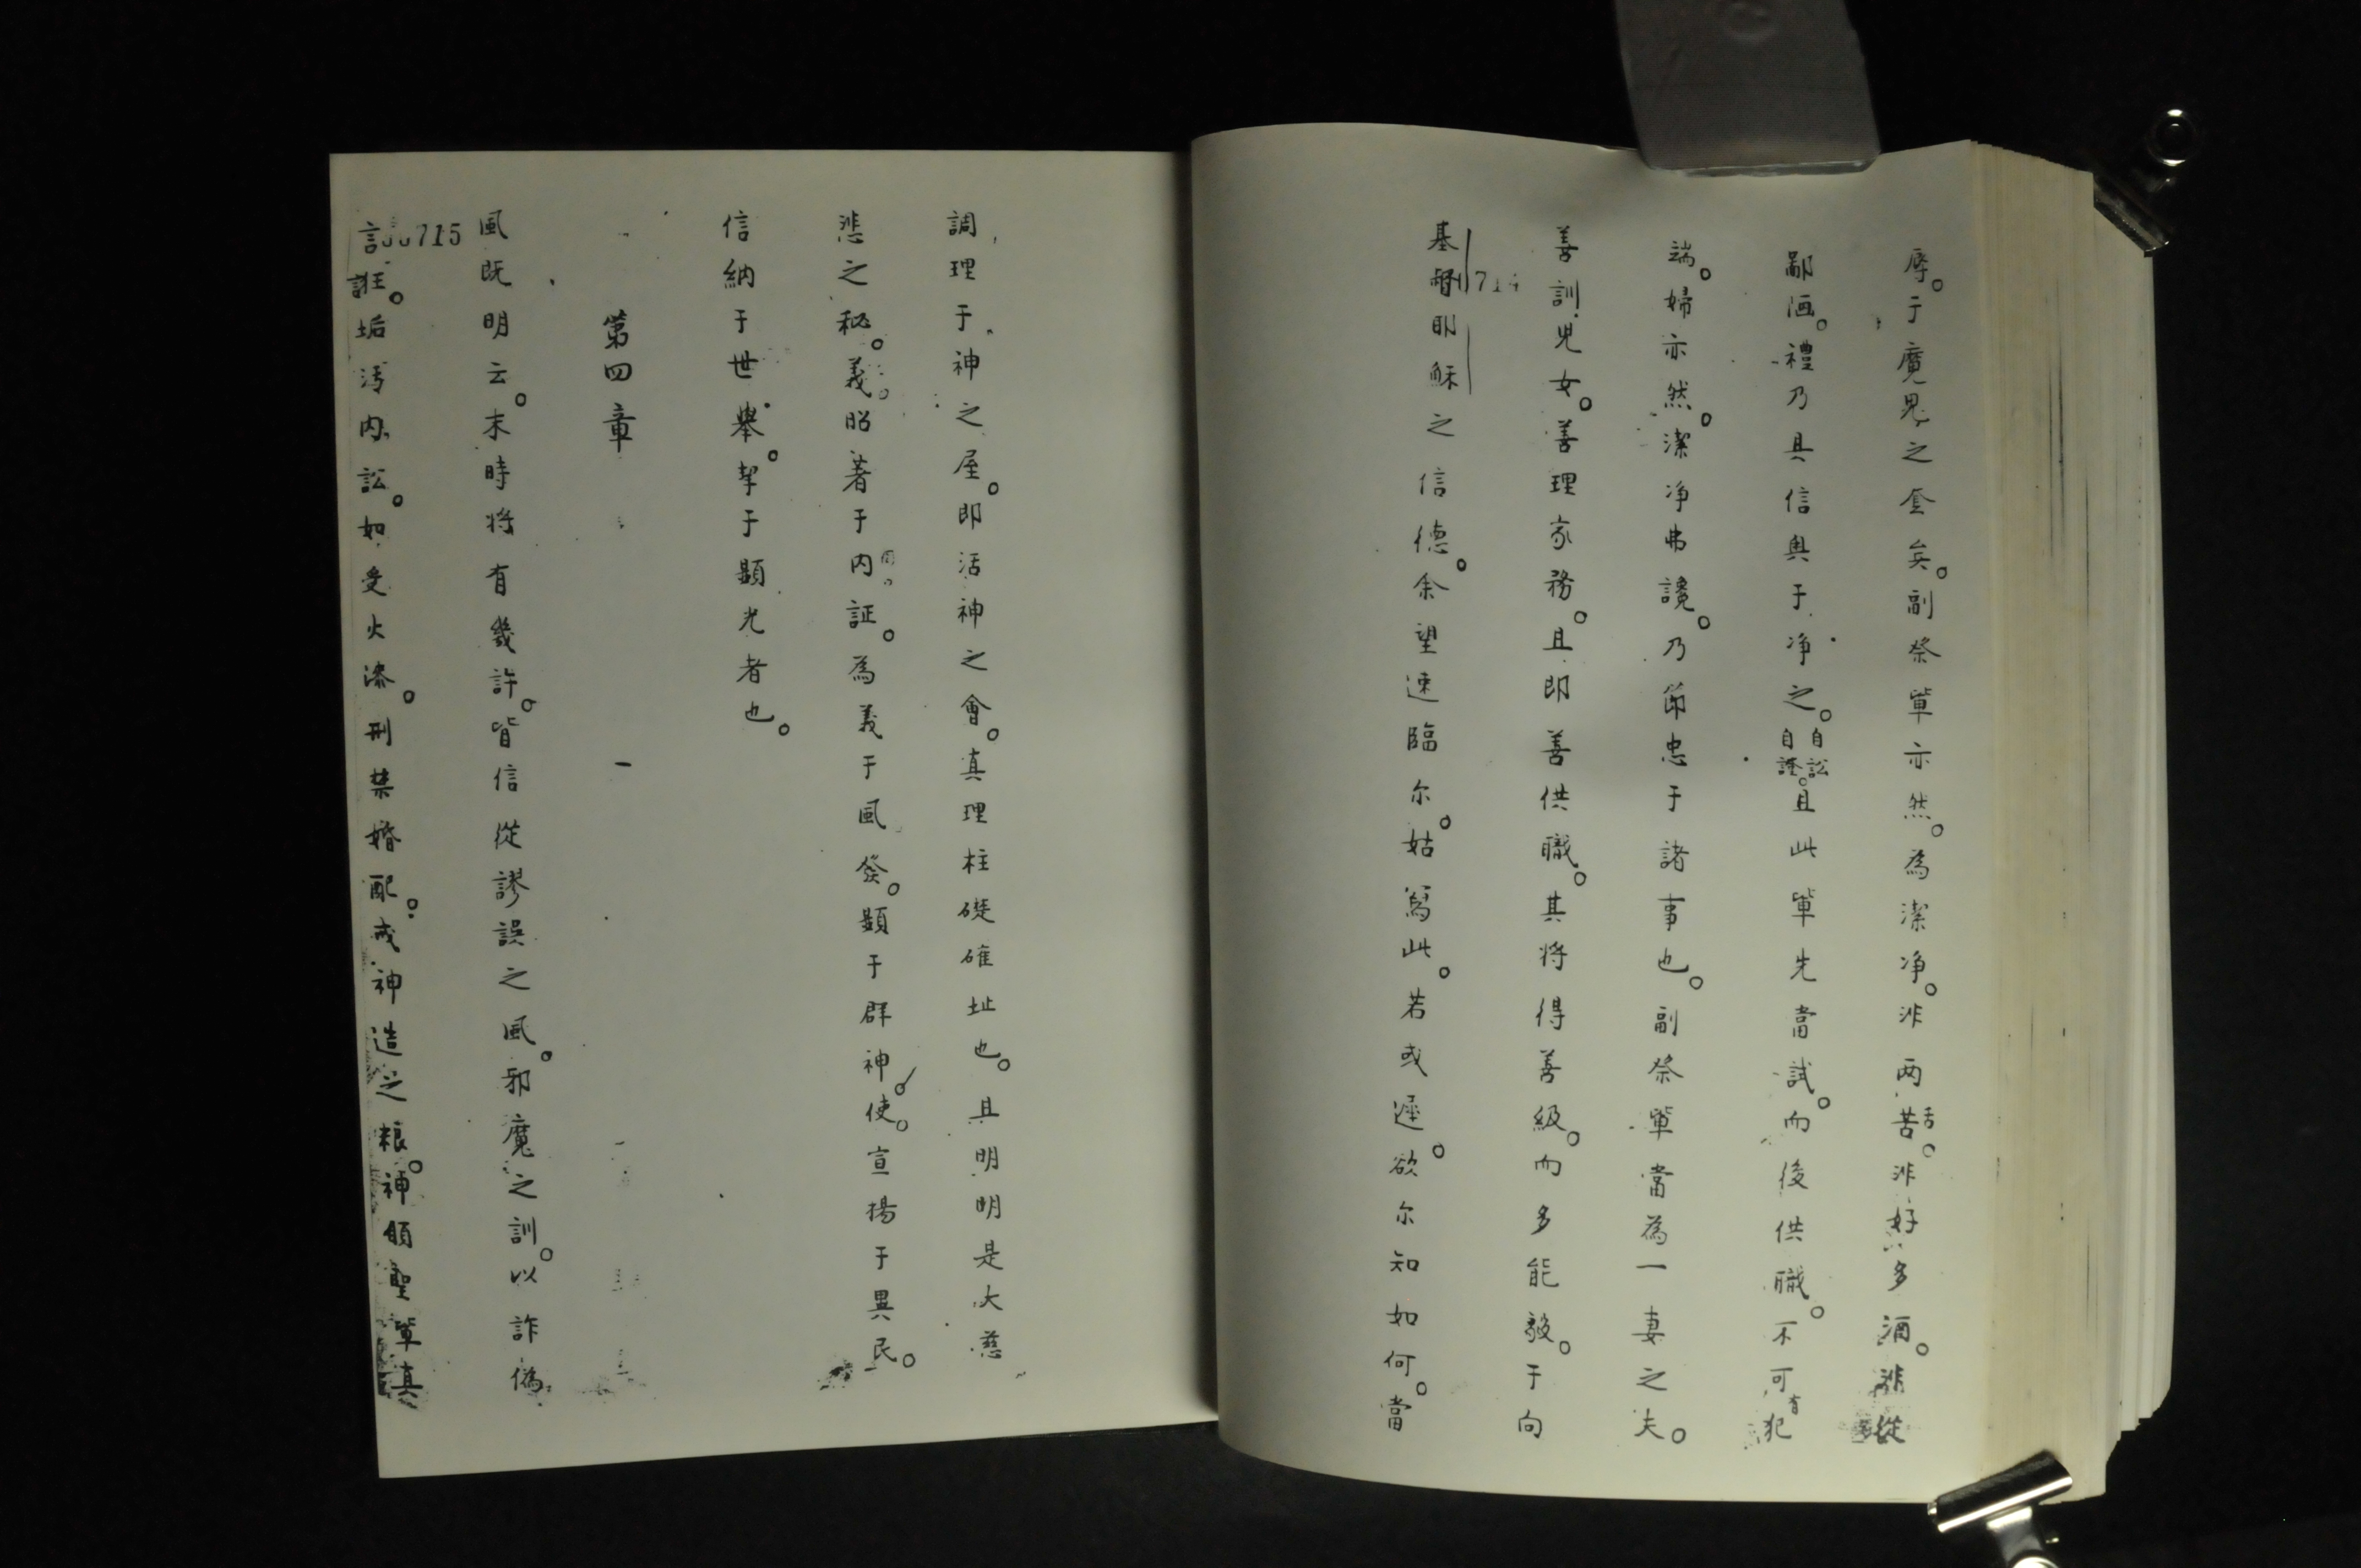 辱。于魔鬼之套矣。副祭軰亦然。為潔净。非两舌。非好多酒。非從
鄙洒。禮乃具信奥于净之。自訟自證。且此軰先當試。而後供職。不可有犯
端。婦亦然。潔净弗讒。乃節忠于諸事也。副祭軰當為一妻之夫。
善訓児女。善理家務。且即善供職。其将得善級。而多能毅。于向
基督耶穌之信德。余望速臨尔。姑寫此。若或遲。欲尔知如何。當
714
調理于神之屋。即活神之會。真理柱礎確址也。且明明是大慈
悲之秘。義昭著于内証。為義于風發。顯于群神使。宣揚于異民。
信納于世舉。挈于顯光者也。
第四章
風既明云。末時将有幾許。皆信從謬誤之風。邪魔之訓。以詐偽
言誑。垢污内訟。如受火漆。刑禁婚配。戒神造之粮。神頒聖軰真
715